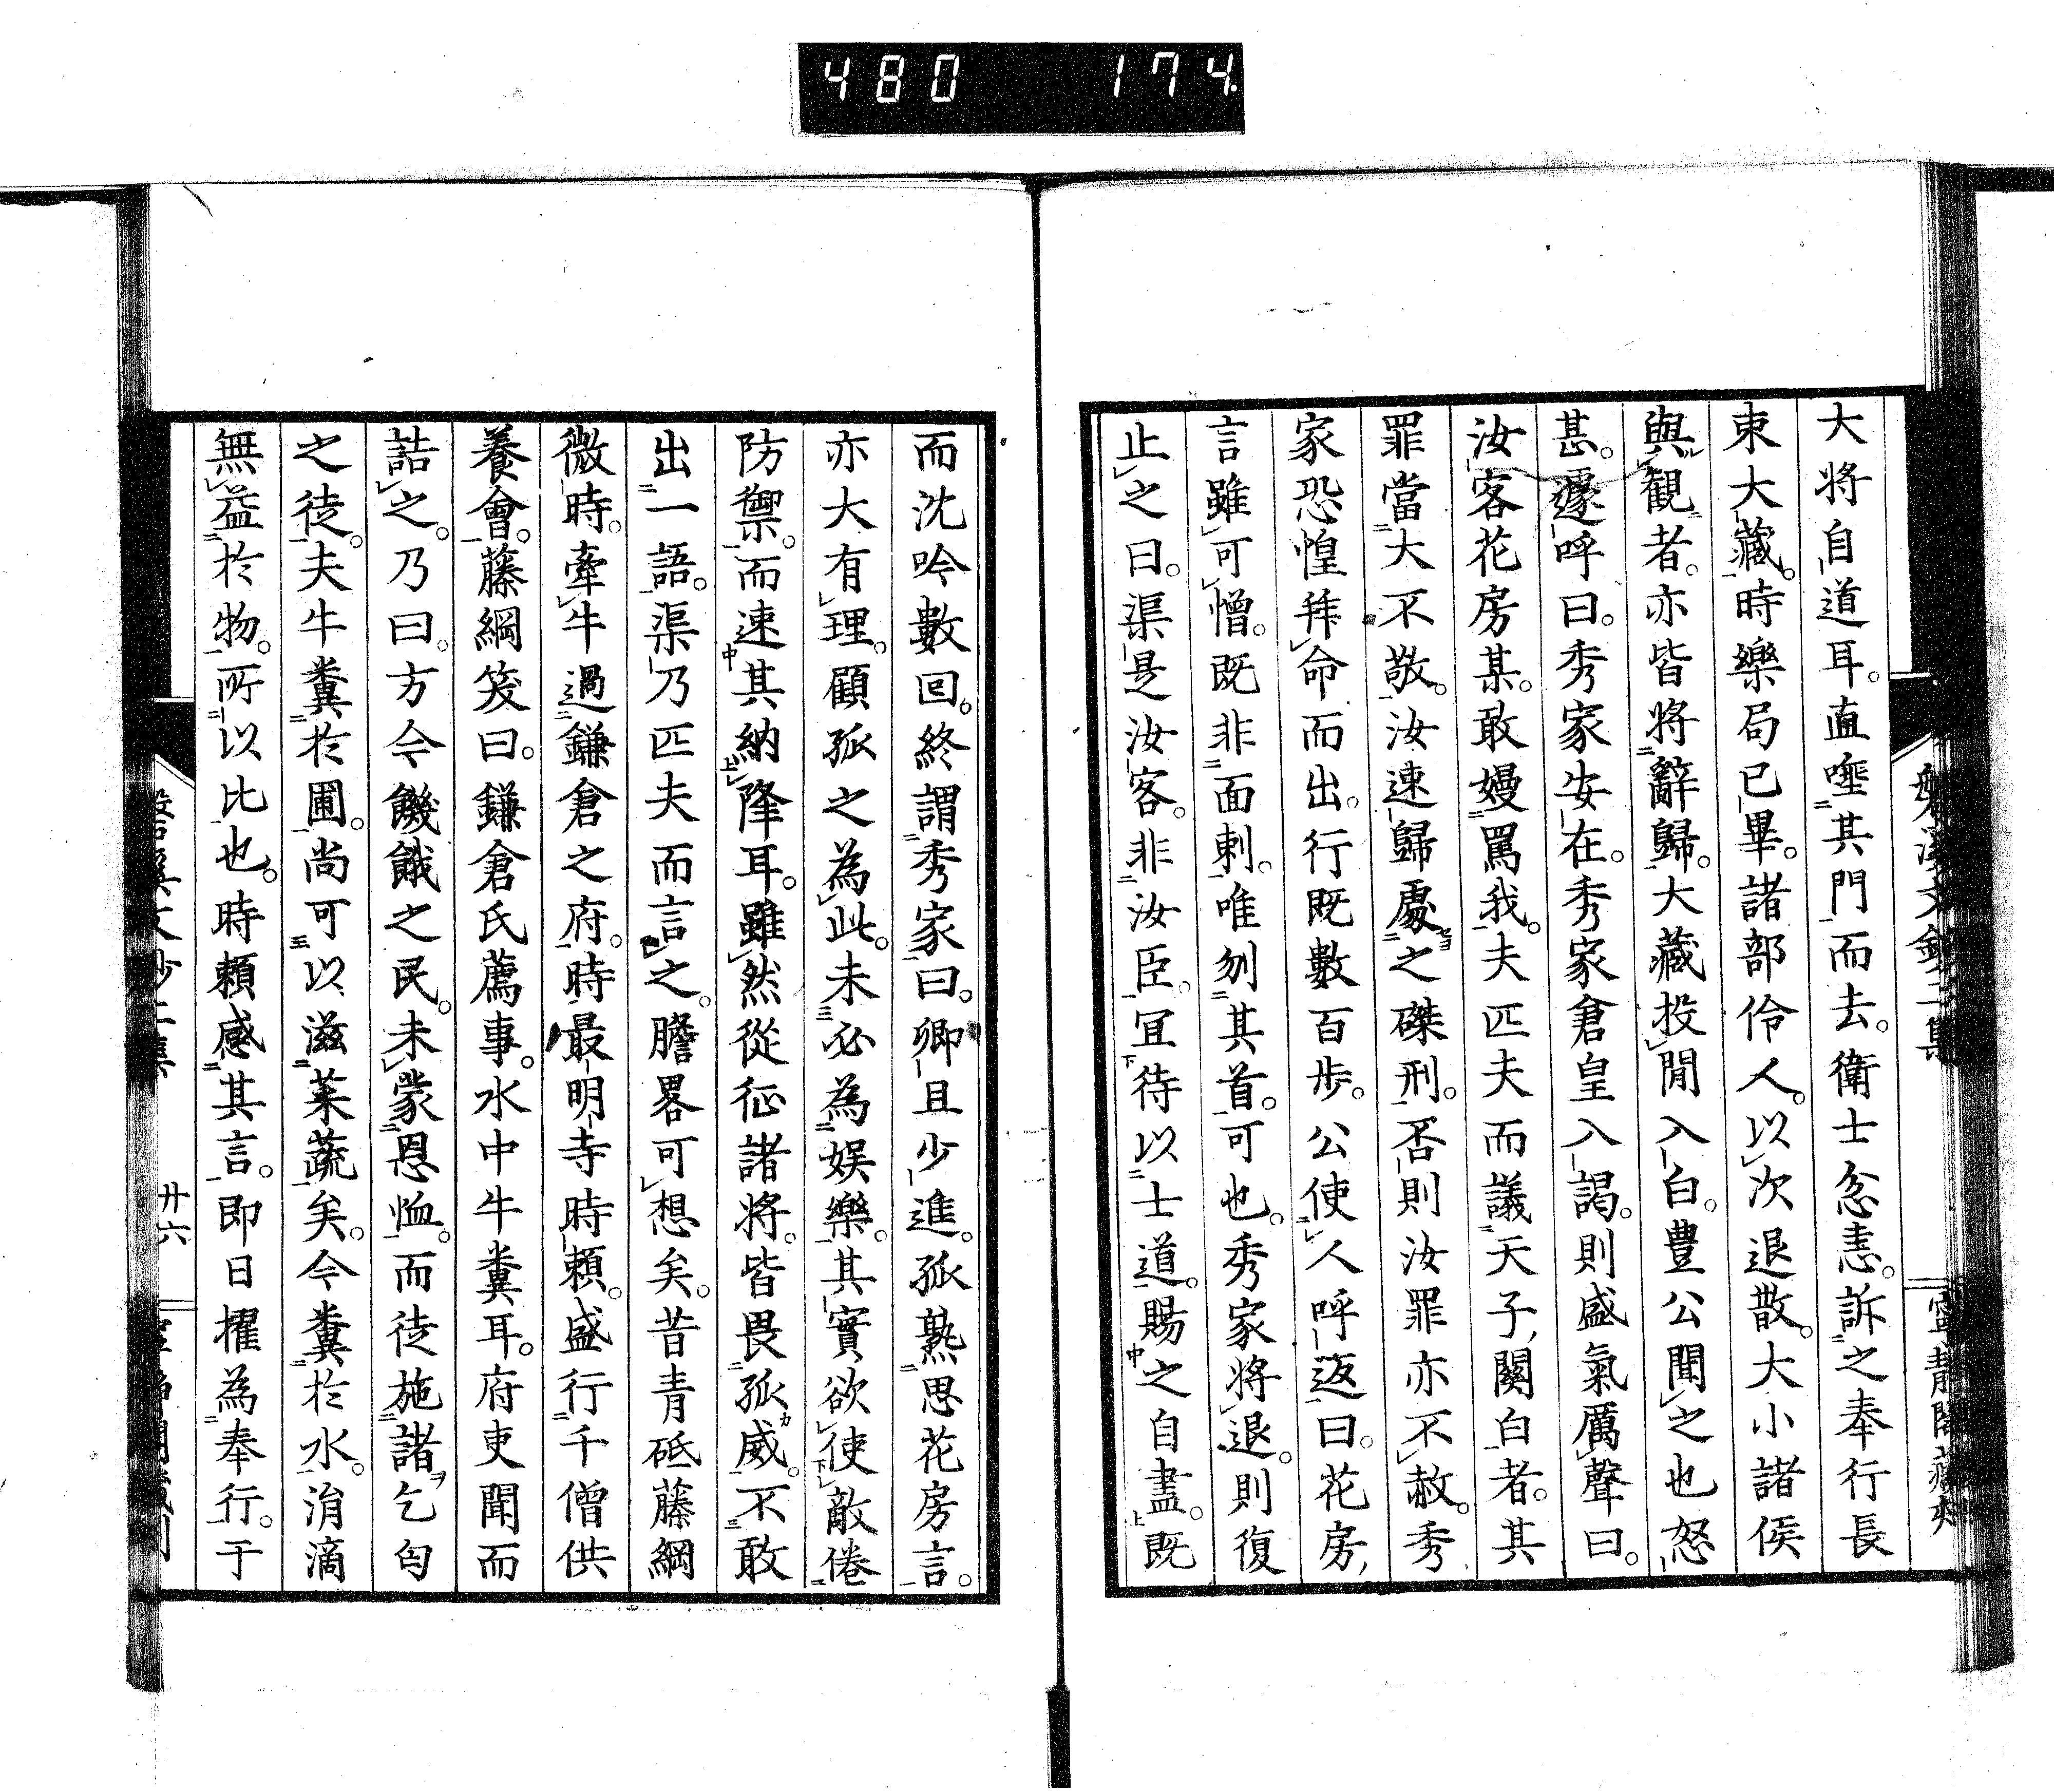 480 174
大將自道耳。直唾其門而去。衛士忿恚。訴之奉行長
束大藏。時樂局已畢。諸部伶人。以次退散。大小諸侯
與觀者。亦皆將辭歸。大藏投間入白。豊公聞之也怒
甚。遽呼曰。秀家安在。秀家倉皇入謁。則盛氣厲聲曰。
汝客花房某。敢嫚罵我。夫匹夫而議天子關白者。其
罪當大不敬。汝速歸處之磔刑。否則汝罪亦不赦。秀
家恐惶拜命而出。行既數百步。公使人呼返曰。花房
言雖可憎。既非面刺。唯刎其首。可也。秀家將退。則復
止之曰。渠是汝客。非汝臣。宜待以士道。賜之自盡。既
而沈吟數回。終謂秀家曰。卿且少進。孤熟思花房言。
亦大有理。顧孤之為此。未必為娛樂。其實欲使敵倦
防禦。而速其納降耳。雖然從征諸將。皆畏孤威。不敢
出一語。渠乃匹夫而言之。膽畧可想矣。昔青砥藤綱
微時。牽牛過鎌倉之府。時最明寺時賴。盛行千僧供
養會。藤綱笑曰。鎌倉氏薦事。水中牛糞耳。府吏聞而
詰之。乃曰。方今饑餓之民。未蒙恩恤。而徒施諸乞匄
之徒。夫牛糞於圃。尚可以滋菜蔬矣。今糞於水。涓滴
無益於物。所以比也。時賴感其言。即日擢為奉行。于
廿六